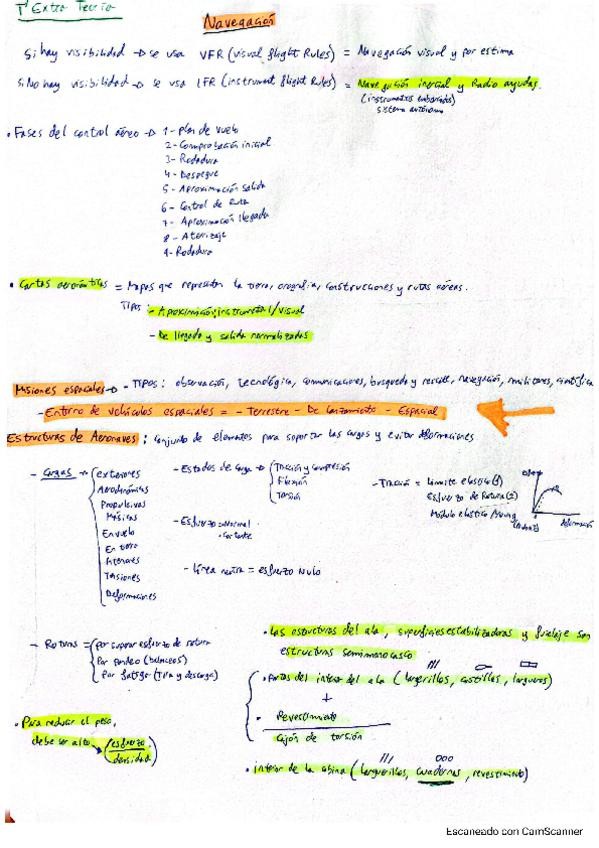 Tª Extra Teoría
Navegación
Si hay visibilidad → se usa VFR (visual flight Rules) = Navegación visual y por estima
Si No hay visibilidad → se usa IFR (instrument flight Rules) = Navegación inercial y Radio ayudas.
(instrumentos embarcados)
sistema autónomo
• Fases del control aéreo → 1 - Plan de vuelo
2 - Comprobación inicial
3 - Rodadura
4 - Despegue
5 - Aproximación salida
6 - Control de Ruta
7 - Aproximación llegada
8 - Aterrizaje
9 - Rodadura
• Cartas aeronáuticas = Mapas que representan la tierra, orografía, construcciones y rutas aéreas.
Tipos: - Aproximación: instrumental / visual
- De llegada y salida normalizadas
Misiones espaciales → - Tipos: observación, tecnológica, comunicaciones, busqueda y rescate, navegación, militares, científica
- Entorno de vehículos espaciales = - Terrestre - De lanzamiento - Espacial
Estructuras de Aeronaves: conjunto de elementos para soportar las cargas y evitar deformaciones
- Cargas → exteriores
Aerodinámicas
Propulsivas
Másicas
En vuelo
En tierra
Interiores
Tensiones
Deformaciones
- Estados de carga → Tracción y compresión
Flexión
Torsión
- Esfuerzo normal
• cortante
- Línea neutra = esfuerzo Nulo
- Tracción = Límite elástico (1)
Esfuerzo de Rotura (2)
Módulo elástico Young
deformación
- Roturas = Por superar esfuerzo de rotura
Por pandeo
Por fatiga
• Para reducir el peso,
debe ser alto (esfuerzo
densidad)
• Las estructuras del ala, superficies estabilizadoras y fuselaje son
estructuras semimonocasco
• Partes del interior del ala (larguerillos, costillas, largueros)
+
• Revestimiento
Cajón de torsión
• interior de la cabina (larguerillos, cuadernas, revestimiento)
Escaneado con CamScanner